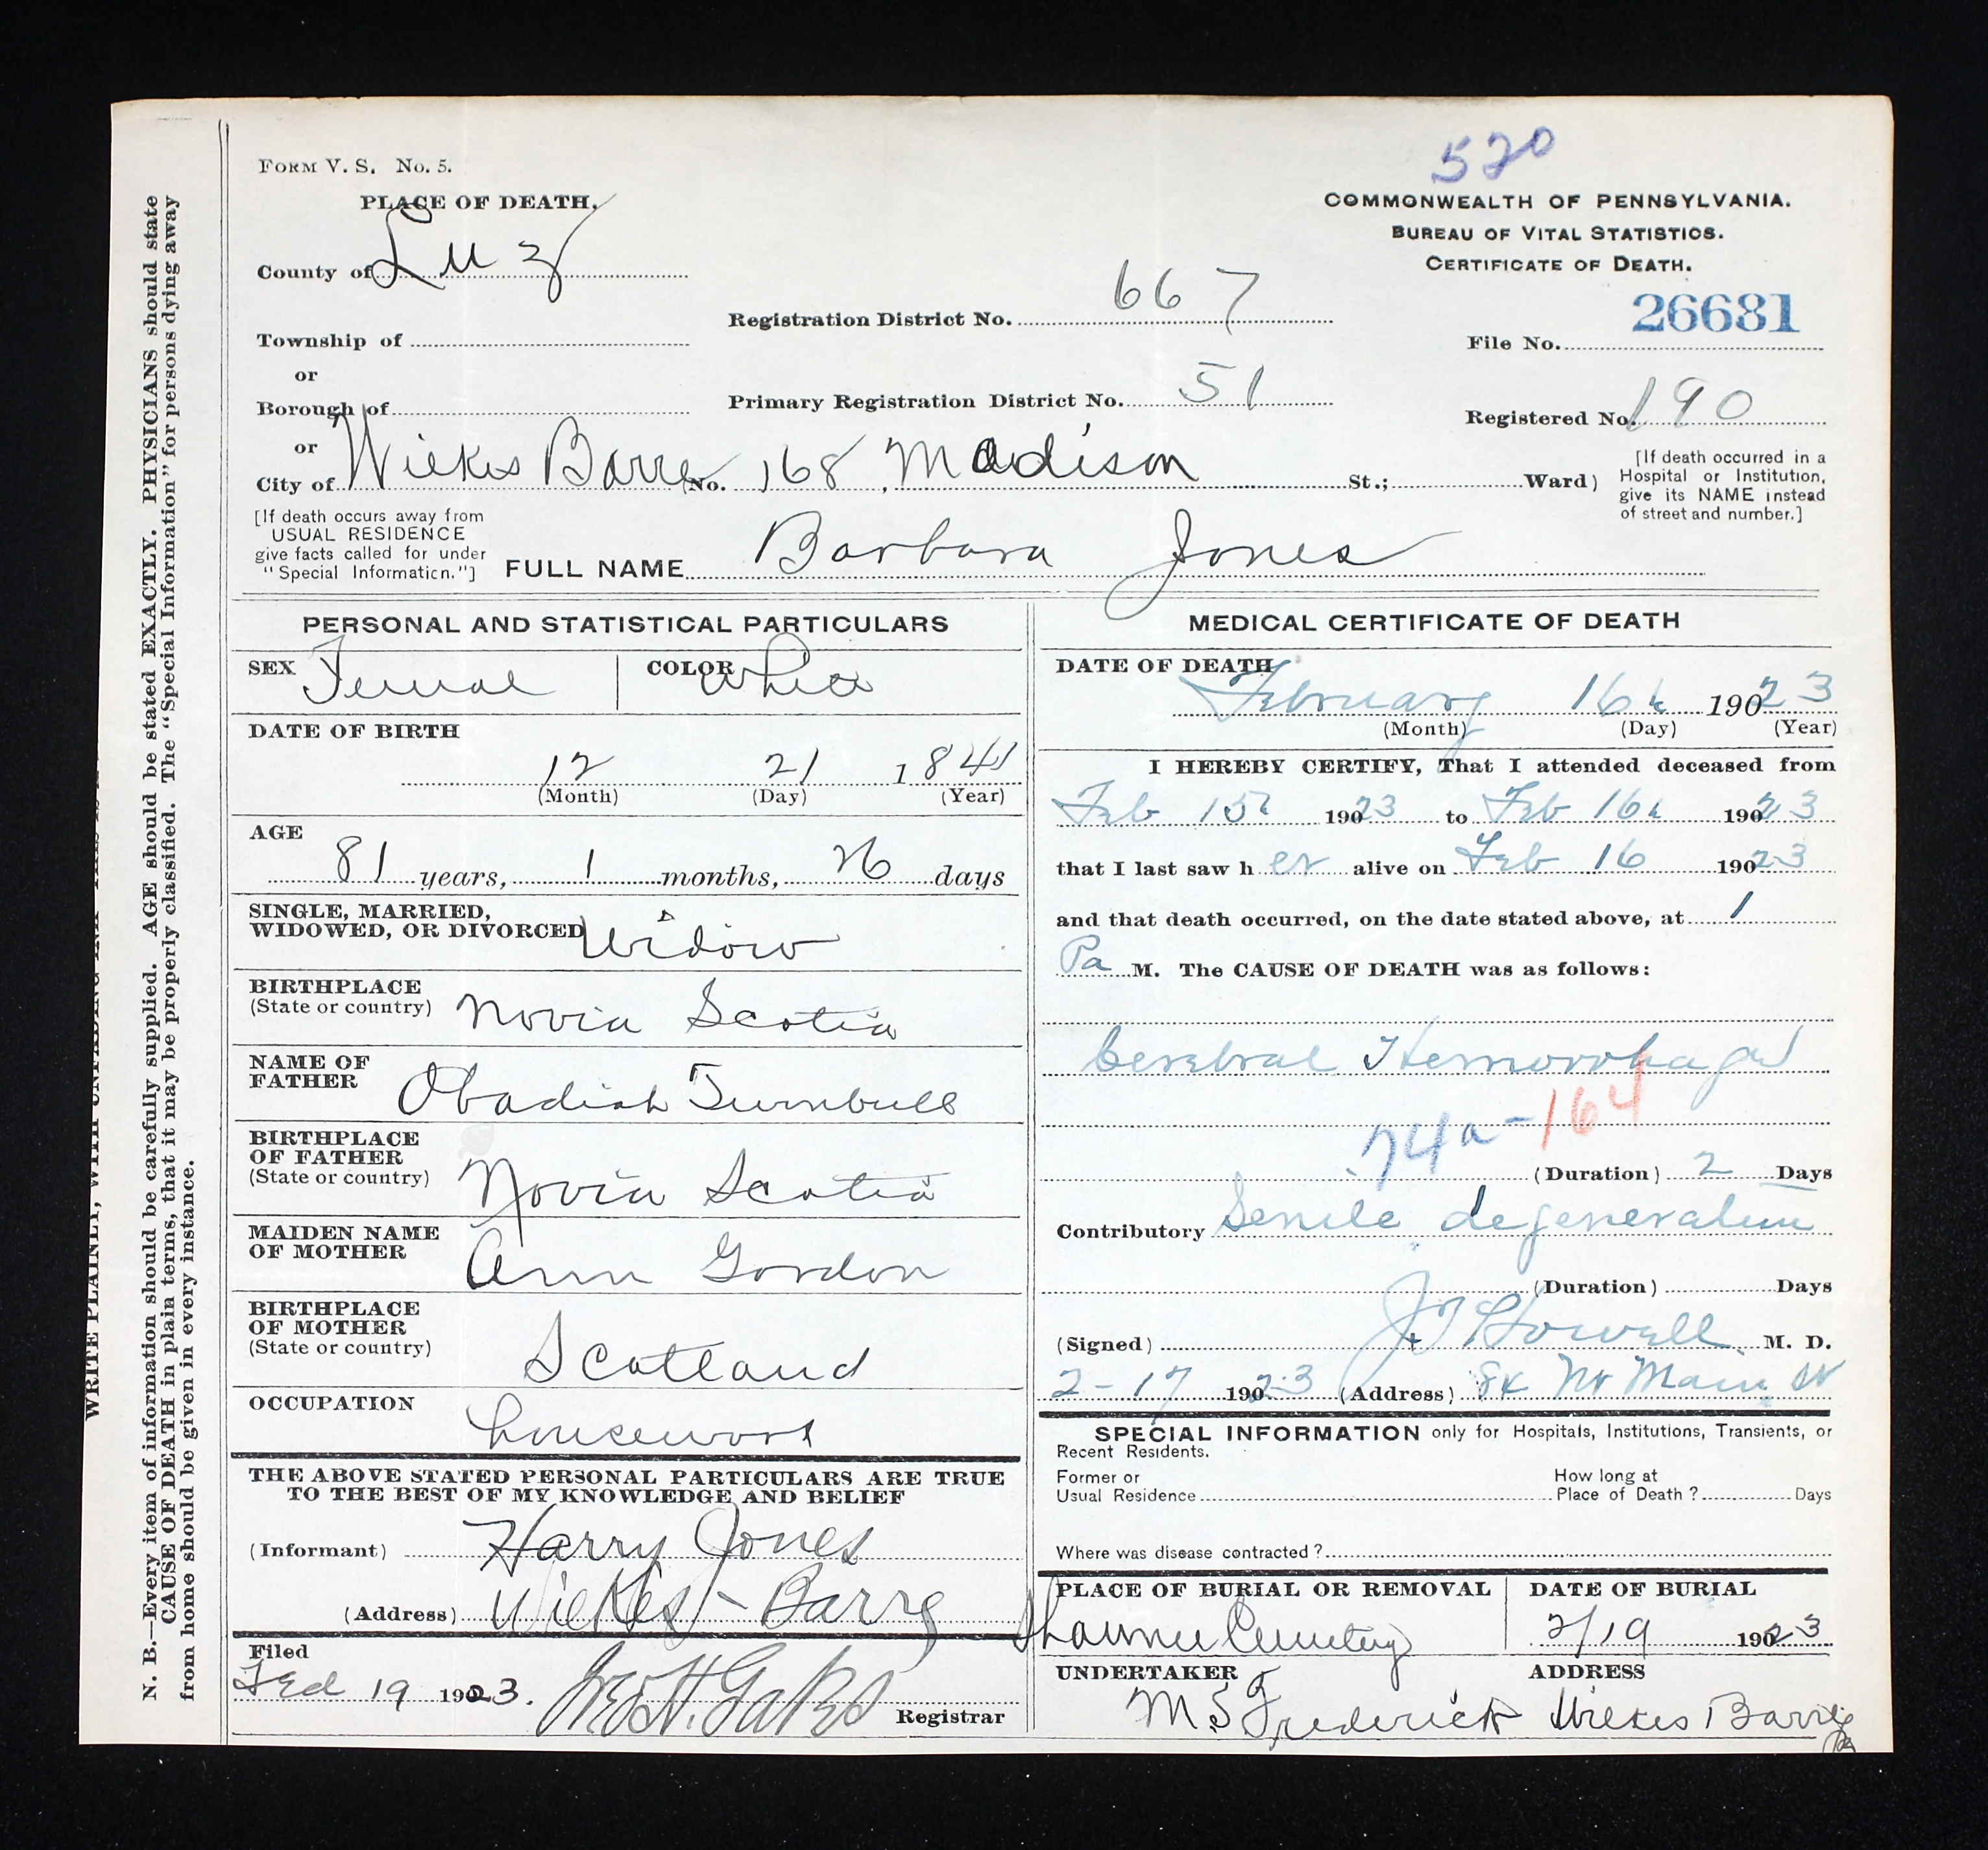 520
FORM V. S. No. 5.
PLACE OF DEATH.
COMMONWEALTH OF PENNSYLVANIA.
BUREAU OF VITAL STATISTICS.
CERTIFICATE OF DEATH.
County of Luz
Registration District No. 667
File No. 26681
Township of
or
Borough of
Primary Registration District No. 51
Registered No. 190
or
City of Wilkes Barre (No. 168, Madison St.; Ward)
[If death occurred in a
Hospital or Institution,
give its NAME instead
of street and number.]
[If death occurs away from
USUAL RESIDENCE
give facts called for under
"Special Information."]
FULL NAME Barbara Jones
PERSONAL AND STATISTICAL PARTICULARS
SEX Female
COLOR White
DATE OF BIRTH
12 21 1841
(Month) (Day) (Year)
AGE
81 years, 1 months, 26 days
SINGLE, MARRIED,
WIDOWED, OR DIVORCED Widow
BIRTHPLACE
(State or country) Novia Scotia
NAME OF
FATHER Obadiah Turnbull
BIRTHPLACE
OF FATHER
(State or country) Novia Scotia
MAIDEN NAME
OF MOTHER Ann Gordon
BIRTHPLACE
OF MOTHER
(State or country) Scotland
OCCUPATION
housework
THE ABOVE STATED PERSONAL PARTICULARS ARE TRUE
TO THE BEST OF MY KNOWLEDGE AND BELIEF
(Informant) Harry Jones
(Address) Wilkes-Barre
Filed
Feb 19 1923.
Registrar
MEDICAL CERTIFICATE OF DEATH
DATE OF DEATH
February 16th 19023
(Month) (Day) (Year)
I HEREBY CERTIFY, That I attended deceased from
Feb 15th 19023 to Feb 16th 19023
that I last saw her alive on Feb 16 19023
and that death occurred, on the date stated above, at 1
P M. The CAUSE OF DEATH was as follows:
Cerebral Hemorrhage
74a-164
(Duration) 2 Days
Contributory Senile degeneration
(Duration) Days
(Signed) Howell M. D.
2-17 19023 (Address) 84 Main St
SPECIAL INFORMATION only for Hospitals, Institutions, Transients, or
Recent Residents.
Former or
Usual Residence
How long at
Place of Death? Days
Where was disease contracted?
PLACE OF BURIAL OR REMOVAL
Shawnee Cemetery
DATE OF BURIAL
2/19 19023
UNDERTAKER
M. S. Frederick
ADDRESS
Wilkes Barre
Pa
N. B.—Every item of information should be carefully supplied. AGE should be stated EXACTLY. PHYSICIANS should state
CAUSE OF DEATH in plain terms, that it may be properly classified. The "Special Information" for persons dying away
from home should be given in every instance.
WRITE PLAINLY, WITH UNFADING INK